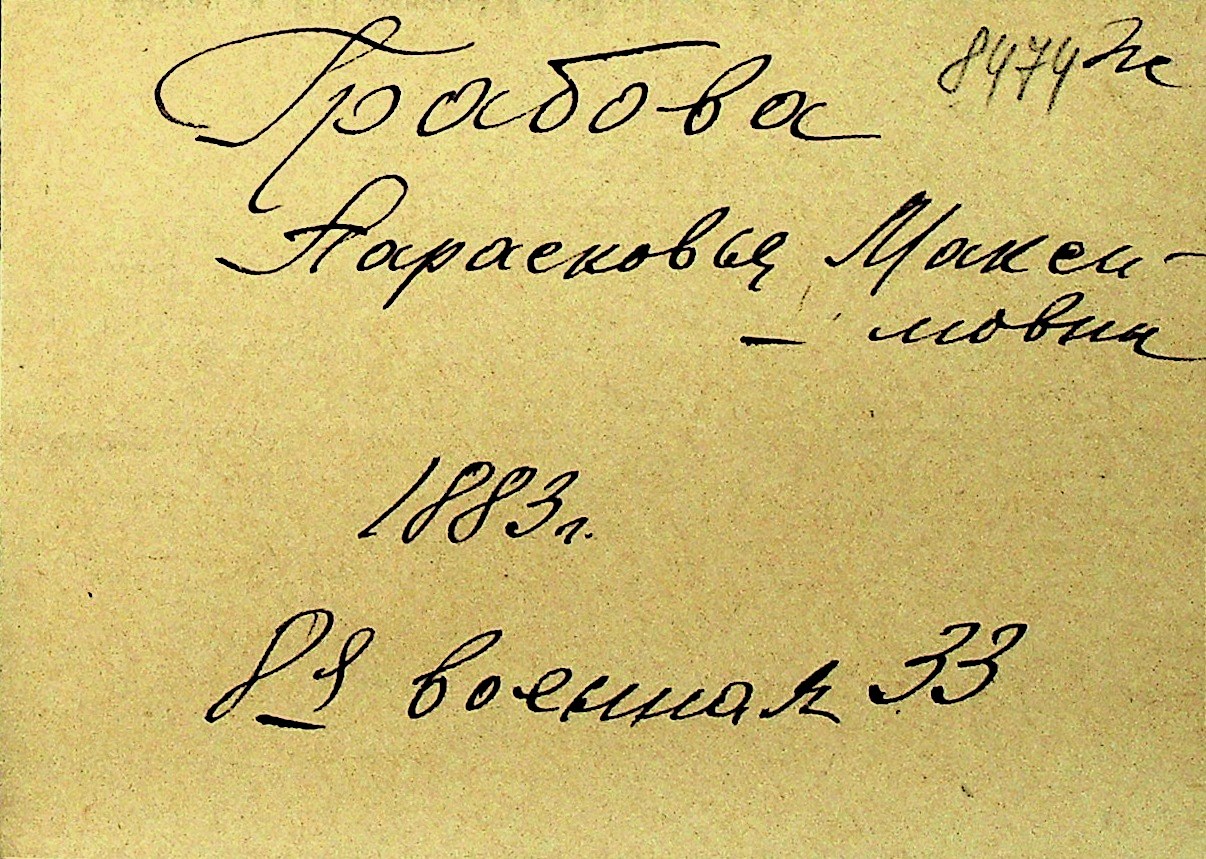 Грабова 8474 ж
Парасковья Макси-
мовна
1883г.
8я военная 33